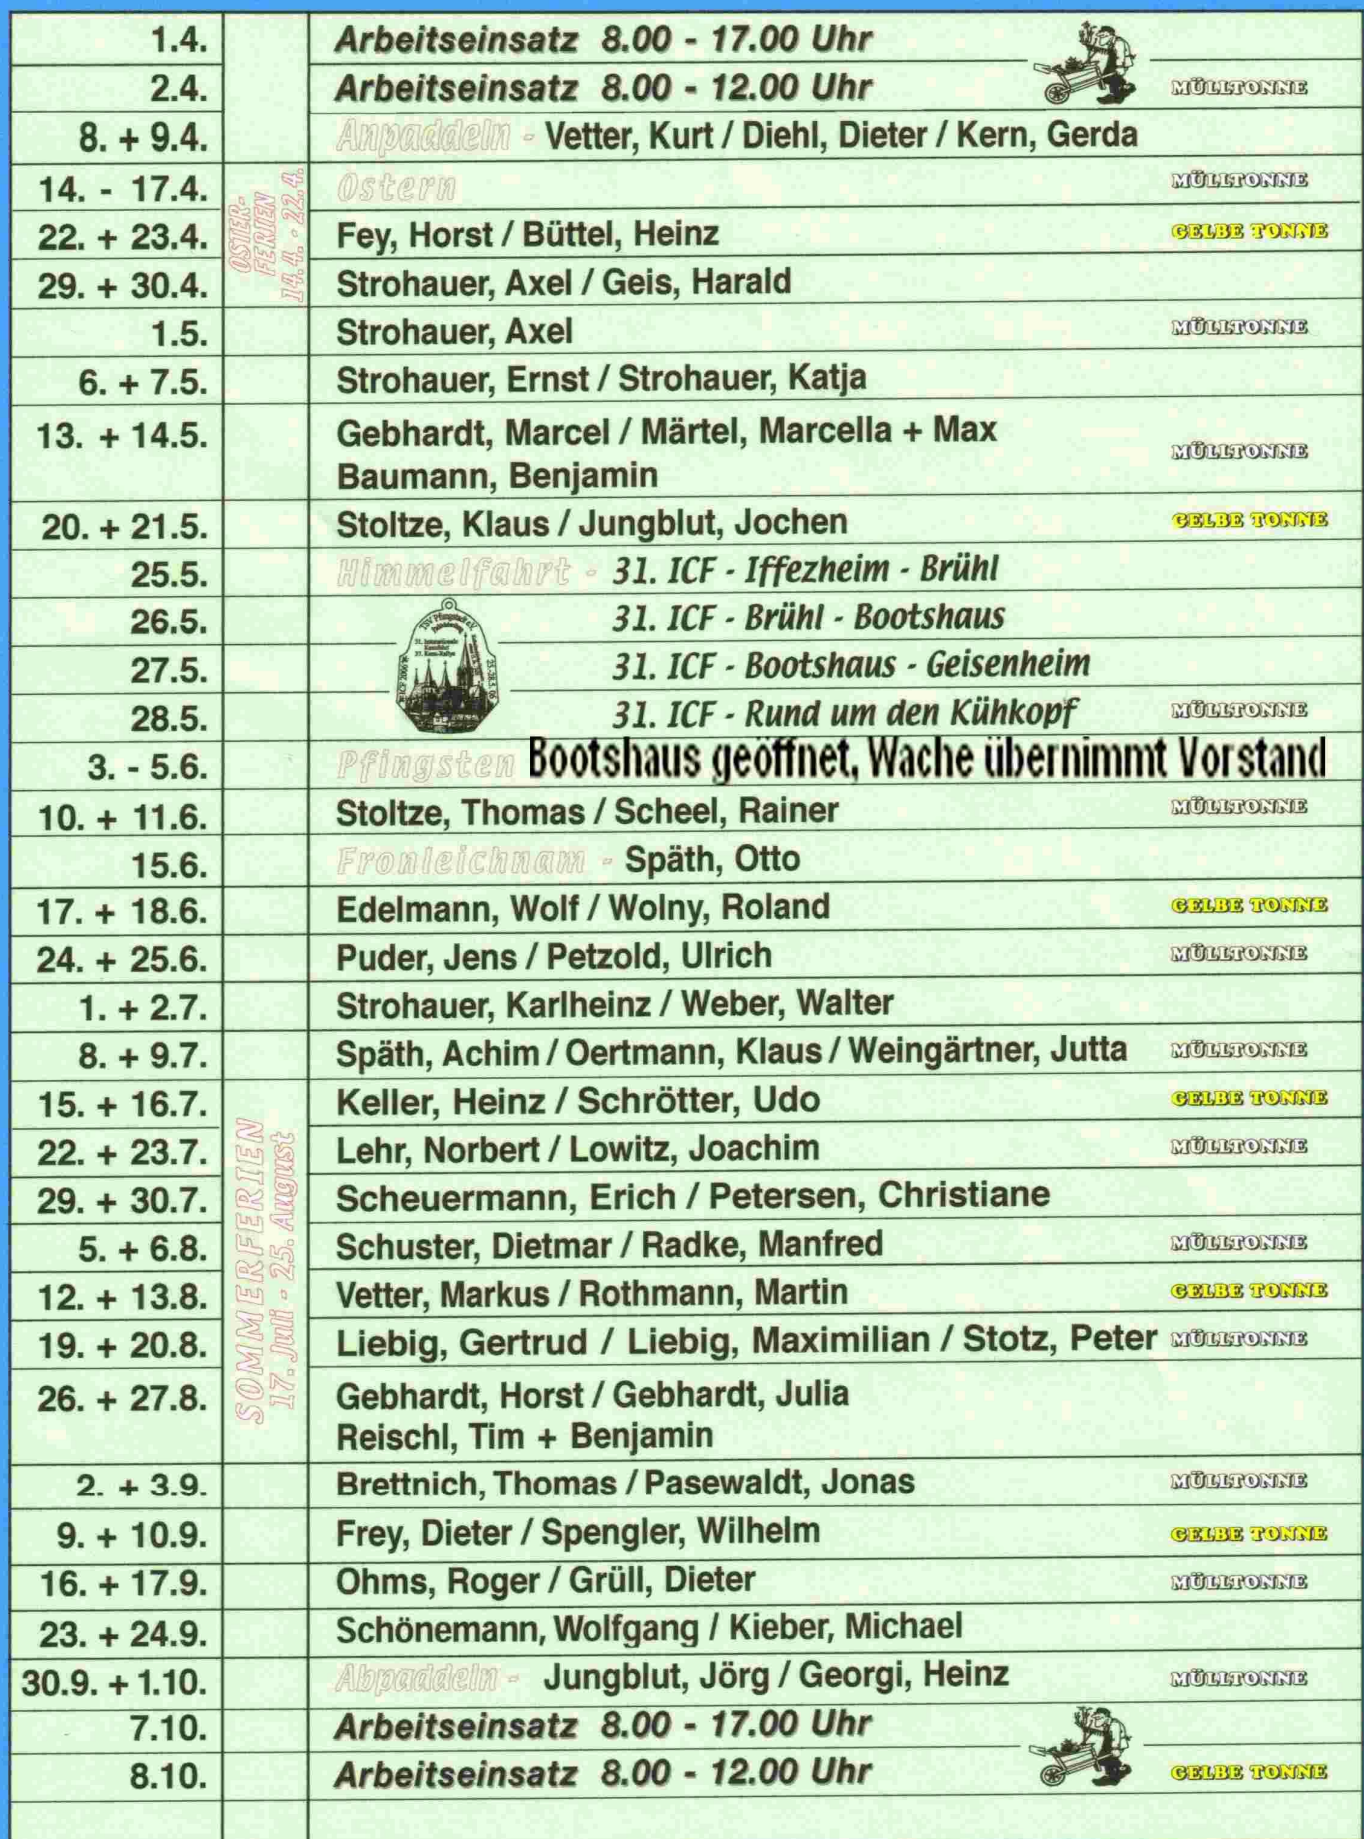 1.4. Arbeitseinsatz 8.00 - 17.00 Uhr
2.4. Arbeitseinsatz 8.00 - 12.00 Uhr MÜLLTONNE
8. + 9.4. Anpaddeln - Vetter, Kurt / Diehl, Dieter / Kern, Gerda
OSTER-
FERIEN
14.4. - 22.4.
14. - 17.4. Ostern MÜLLTONNE
22. + 23.4. Fey, Horst / Büttel, Heinz GELBE TONNE
29. + 30.4. Strohauer, Axel / Geis, Harald
1.5. Strohauer, Axel MÜLLTONNE
6. + 7.5. Strohauer, Ernst / Strohauer, Katja
13. + 14.5. Gebhardt, Marcel / Märtel, Marcella + Max
Baumann, Benjamin MÜLLTONNE
20. + 21.5. Stoltze, Klaus / Jungblut, Jochen GELBE TONNE
25.5. Himmelfahrt - 31. ICF - Iffezheim - Brühl
26.5. 31. ICF - Brühl - Bootshaus
27.5. 31. ICF - Bootshaus - Geisenheim
28.5. 31. ICF - Rund um den Kühkopf MÜLLTONNE
3. - 5.6. Pfingsten Bootshaus geöffnet, Wache übernimmt Vorstand
10. + 11.6. Stoltze, Thomas / Scheel, Rainer MÜLLTONNE
15.6. Fronleichnam - Späth, Otto
17. + 18.6. Edelmann, Wolf / Wolny, Roland GELBE TONNE
24. + 25.6. Puder, Jens / Petzold, Ulrich MÜLLTONNE
1. + 2.7. Strohauer, Karlheinz / Weber, Walter
8. + 9.7. Späth, Achim / Oertmann, Klaus / Weingärtner, Jutta MÜLLTONNE
SOMMERFERIEN
17. Juli - 25. August
15. + 16.7. Keller, Heinz / Schrötter, Udo GELBE TONNE
22. + 23.7. Lehr, Norbert / Lowitz, Joachim MÜLLTONNE
29. + 30.7. Scheuermann, Erich / Petersen, Christiane
5. + 6.8. Schuster, Dietmar / Radke, Manfred MÜLLTONNE
12. + 13.8. Vetter, Markus / Rothmann, Martin GELBE TONNE
19. + 20.8. Liebig, Gertrud / Liebig, Maximilian / Stotz, Peter MÜLLTONNE
26. + 27.8. Gebhardt, Horst / Gebhardt, Julia
Reischl, Tim + Benjamin
2. + 3.9. Brettnich, Thomas / Pasewaldt, Jonas MÜLLTONNE
9. + 10.9. Frey, Dieter / Spengler, Wilhelm GELBE TONNE
16. + 17.9. Ohms, Roger / Grüll, Dieter MÜLLTONNE
23. + 24.9. Schönemann, Wolfgang / Kieber, Michael
30.9. + 1.10. Abpaddeln - Jungblut, Jörg / Georgi, Heinz MÜLLTONNE
7.10. Arbeitseinsatz 8.00 - 17.00 Uhr
8.10. Arbeitseinsatz 8.00 - 12.00 Uhr GELBE TONNE